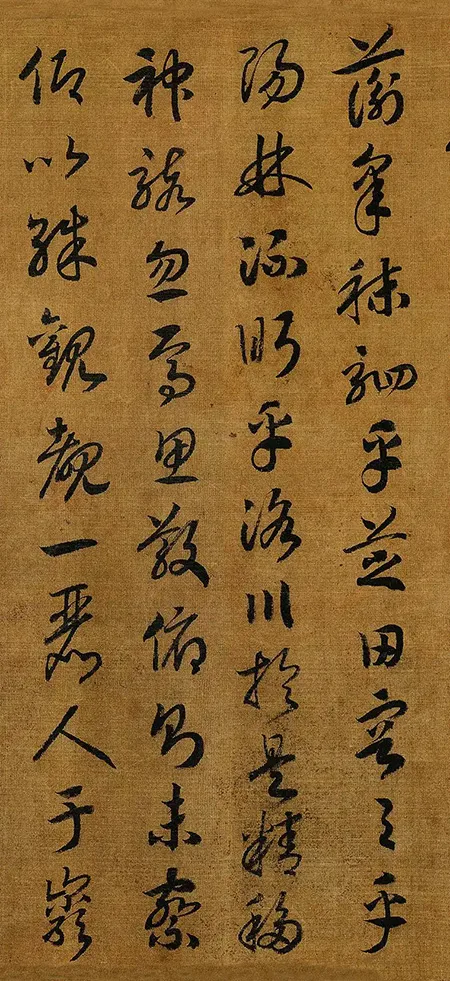 蘅皋秣駟乎芝田容与乎
陽林流眄乎洛川於是精移
神駭忽焉思散俯則未察
仰以殊觀覩一麗人于巖